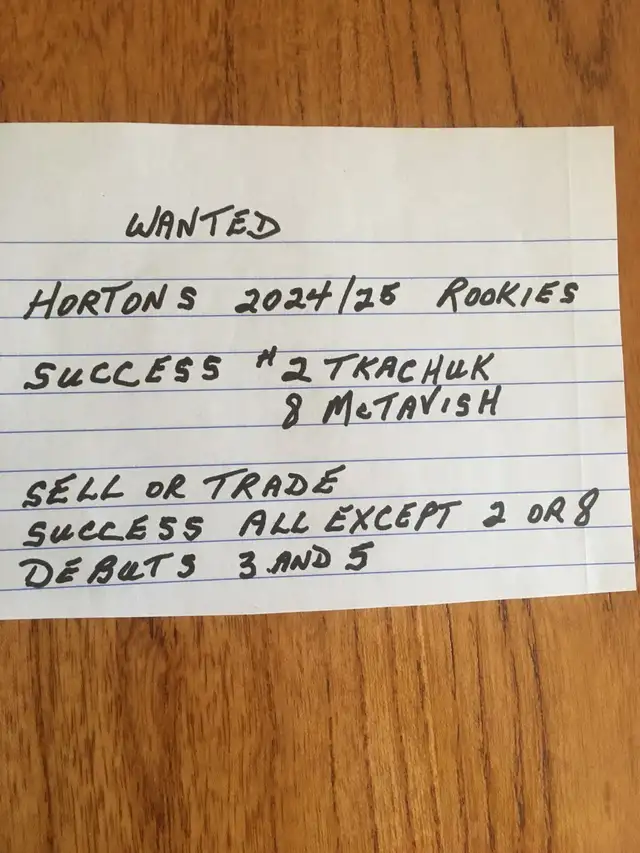 WANTED
HORTONS 2024/25 ROOKIES
SUCCESS # 2 TKACHUK
8 McTAVISH
SELL OR TRADE
SUCCESS ALL EXCEPT 2 OR 8
DEBUTS 3 AND 5